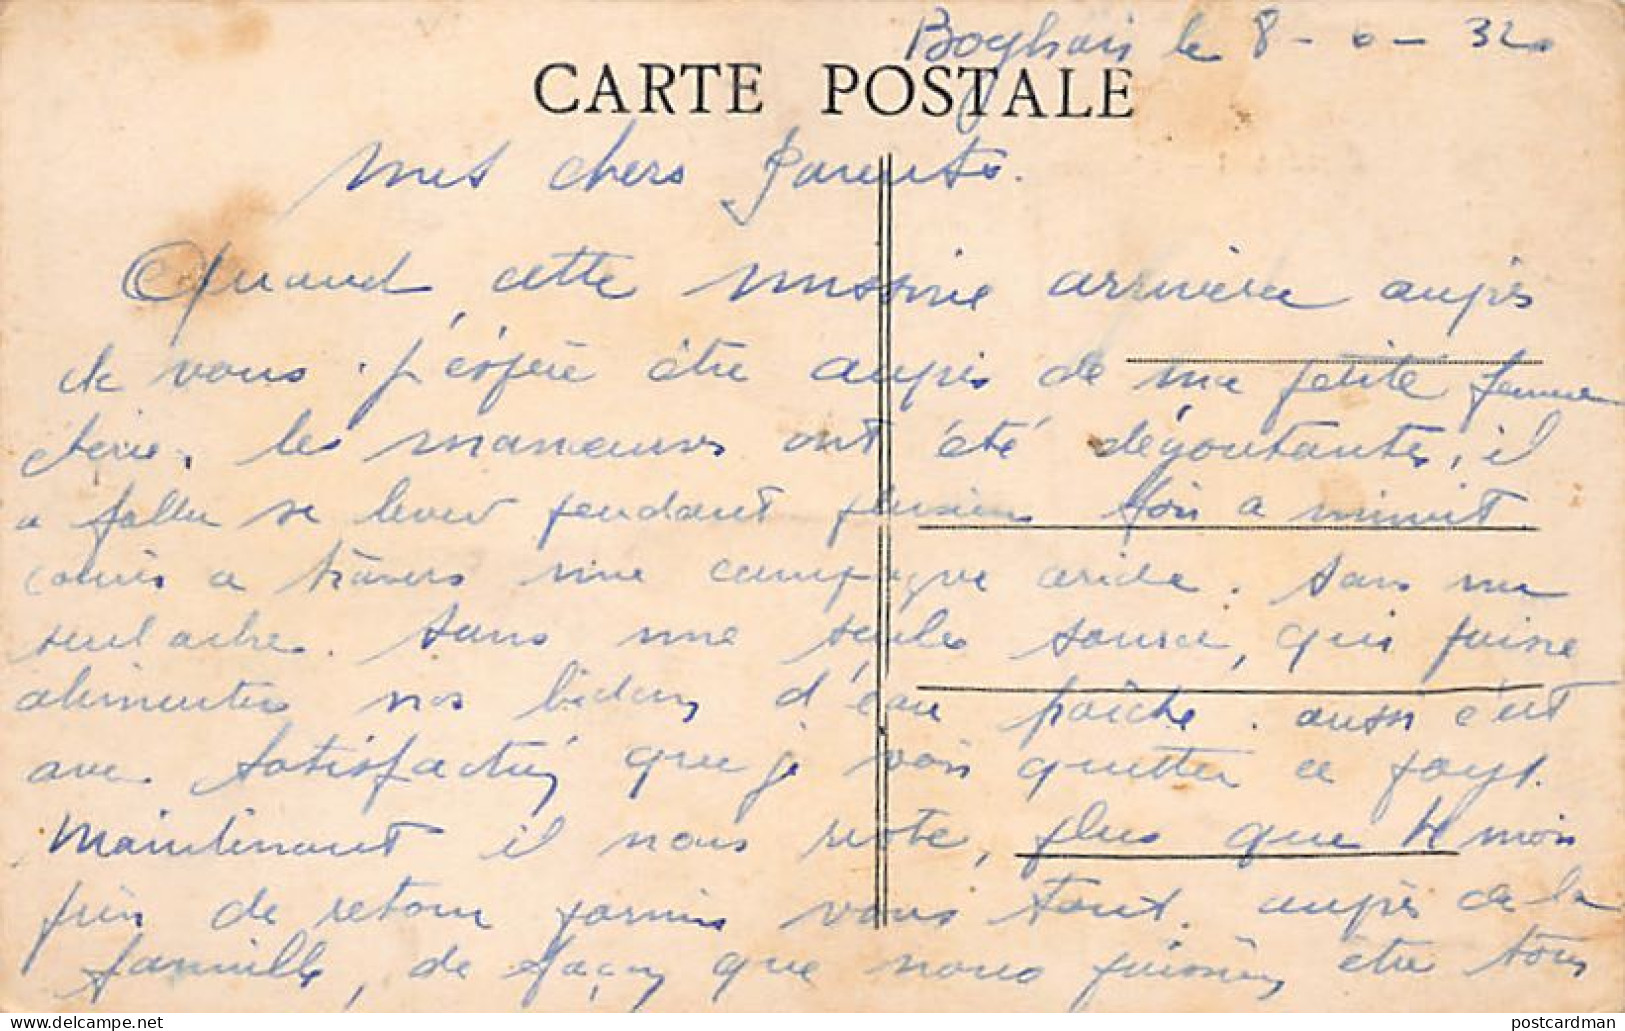 Boghari le 8-6-32.
CARTE POSTALE
Mes chers Parents.
Quand cette missive arrivera auprès
de vous. j'éspère être auprès de ma petite femme
cherie. les maneuvres ont été dégoutantes, il
a fallu se lever pendant plusieurs fois a minuit.
courir a travers une campagne aride. sans un
seul arbre. sans une seule source, qui puisse
alimenter nos bidons d'eau fraiche. aussi c'est
avec satisfaction que je vois quitter ce pays.
Maintenant il nous reste, plus que 4 mois
puis de retour parmis vous tout. auprès de la
famille, de façon que nous puissions être tous
postcardman